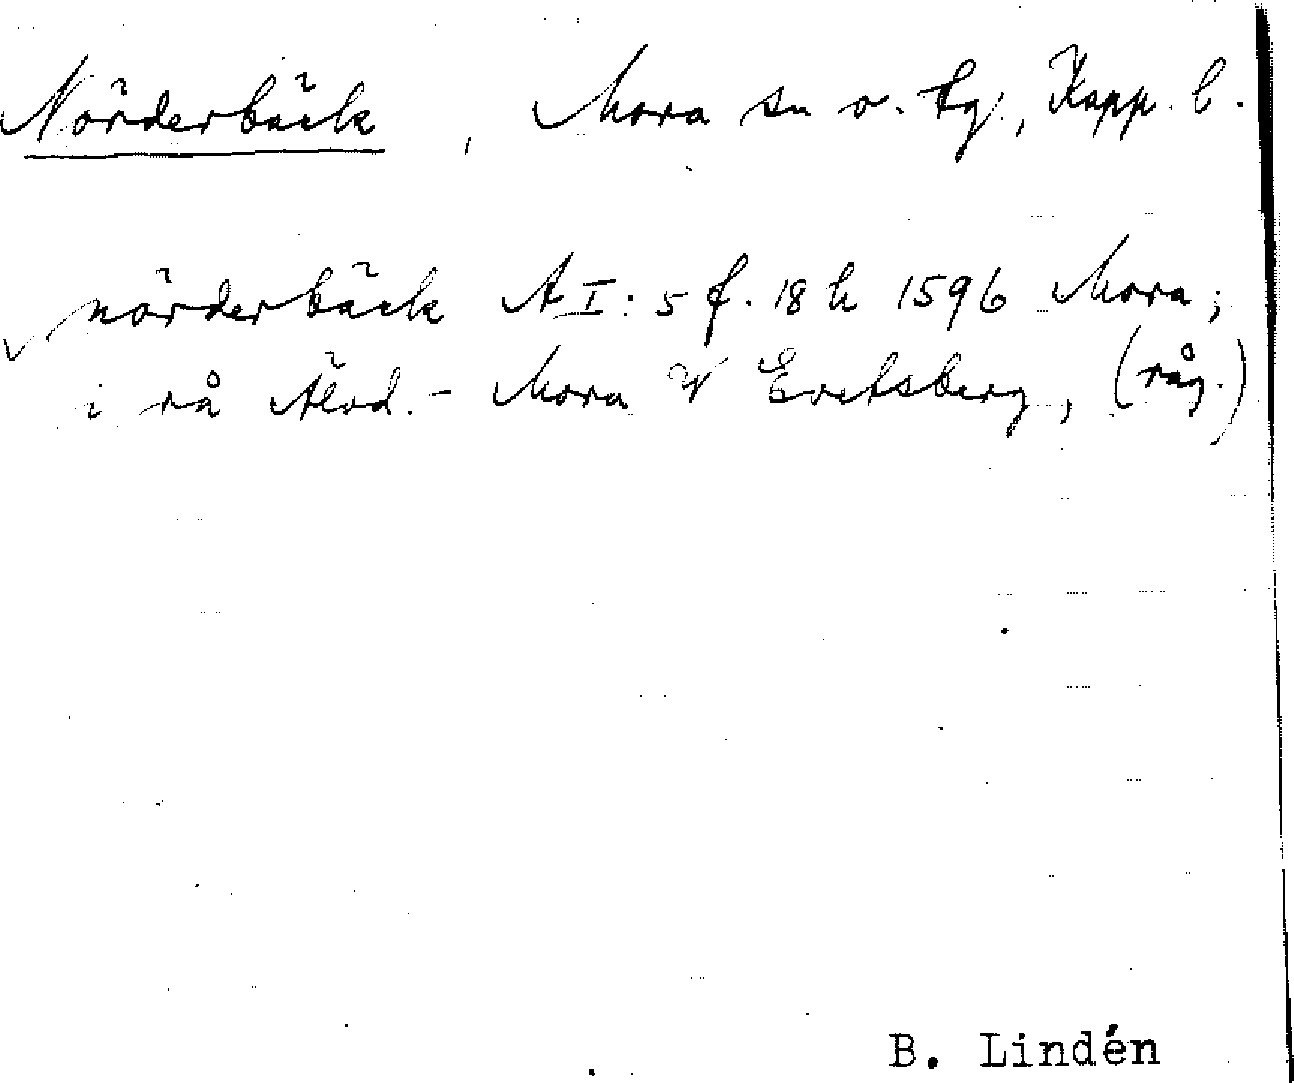 Nörderbäck, Mora sn o. tg., Kopp. l.
nörderbäck A I: 5 f. 18 h 1596 Mora;
i rå Älvd. - Mora V Evertsberg, (råg.)
B. Lindén